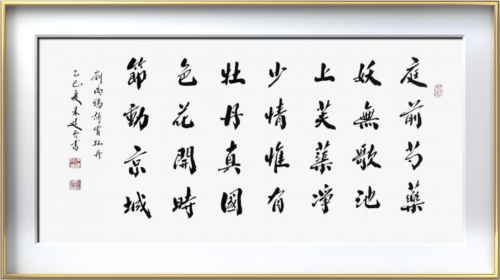 庭前芍藥
妖無歌池
上芙蕖淨
少情惟有
牡丹真國
色花開時
節動京城
劉禹錫詩賞牡丹
乙巳夏 書